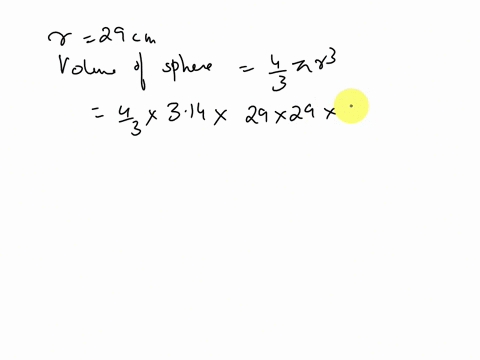 r = 29 cm
Volume of sphere = 4/3 πr³
= 4/3 × 3.14 × 29 × 29 ×